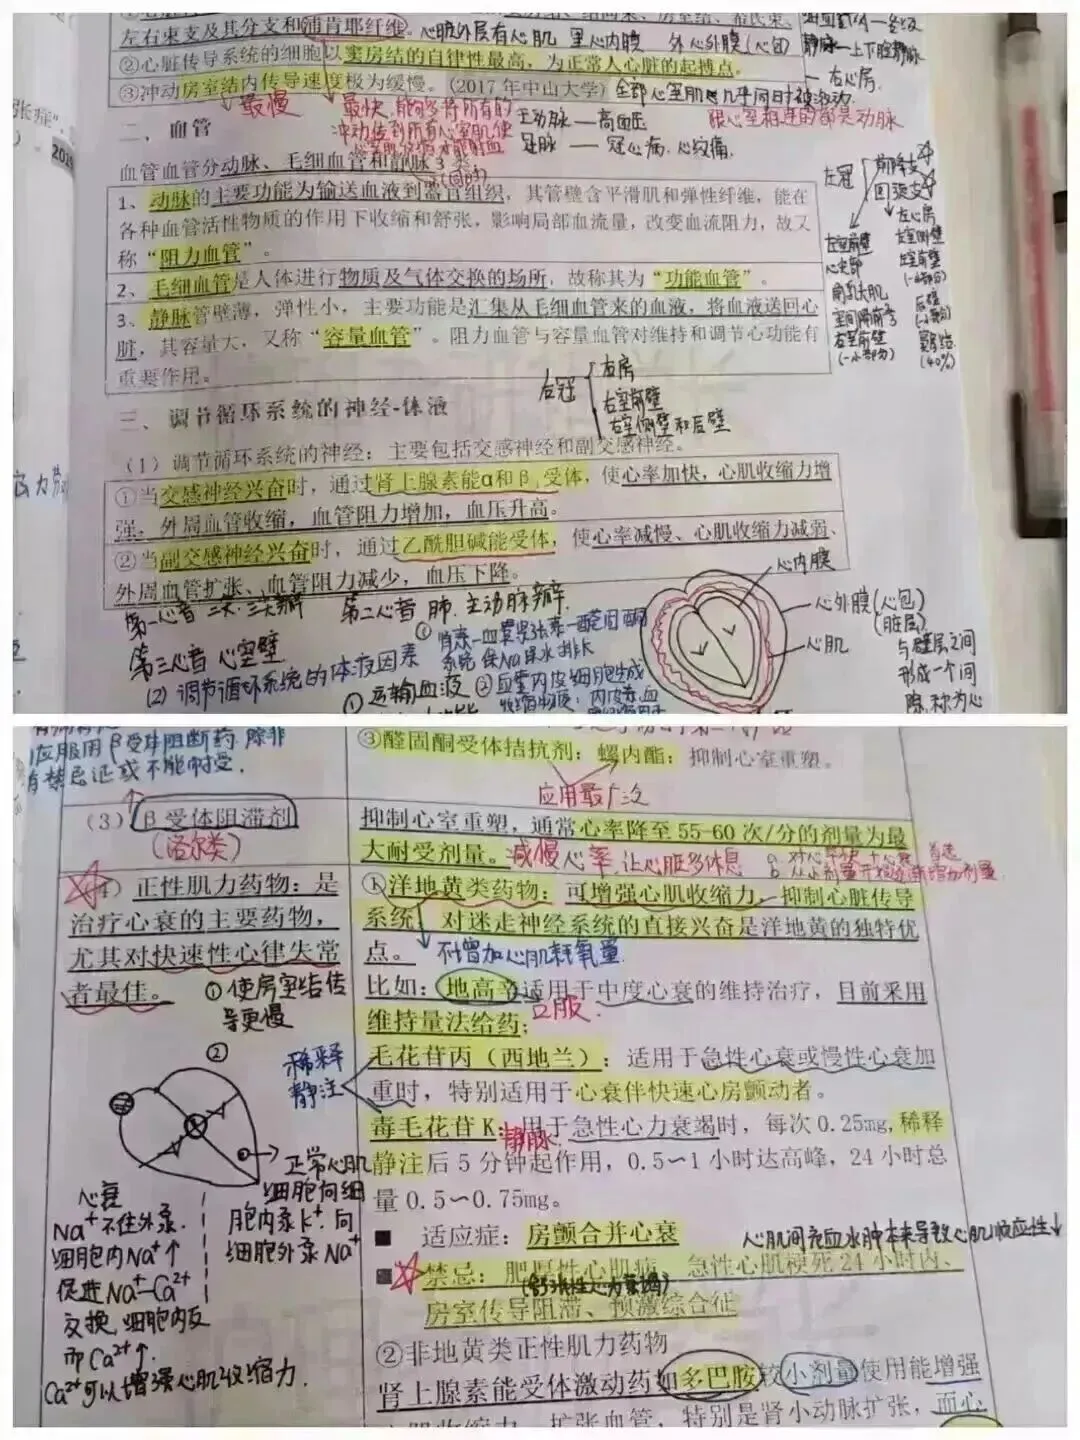 左右束支及其分支和浦肯耶纤维。心脏外层有心肌 里心内膜 外心外膜(心包)
②心脏传导系统的细胞以窦房结的自律性最高，为正常人心脏的起搏点。
③冲动房室结内传导速度极为缓慢。（2017年中山大学）全部心室肌几乎同时被激动
最慢
最快，能够将所有的
冲动传到所有心室肌使
主动脉——高血压
冠脉——冠心病、心绞痛
跟心室相连的都是动脉
静脉—上下腔静脉
—右心房
二、血管
血管血管分动脉、毛细血管和静脉3类
1、动脉的主要功能为输送血液到器官组织，其管壁含平滑肌和弹性纤维，能在
各种血管活性物质的作用下收缩和舒张，影响局部血流量，改变血流阻力，故又
称“阻力血管”。
2、毛细血管是人体进行物质及气体交换的场所，故称其为“功能血管”。
3、静脉管壁薄，弹性小，主要功能是汇集从毛细血管来的血液，将血液送回心
脏，其容量大，又称“容量血管”。阻力血管与容量血管对维持和调节心功能有
重要作用。
左冠
前降支
回旋支
左室前壁
心尖部
前乳头肌
室间隔前
右室前壁
(一小部分)
左心房
左室侧壁
左室前壁
(一小部分)
后壁
(一小部分)
窦房结
(40%)
右冠
右房
右室前壁
右室侧壁和后壁
三、调节循环系统的神经-体液
（1）调节循环系统的神经：主要包括交感神经和副交感神经。
①当交感神经兴奋时，通过肾上腺素能α和β₁受体，使心率加快，心肌收缩力增
强，外周血管收缩，血管阻力增加，血压升高。
②当副交感神经兴奋时，通过乙酰胆碱能受体，使心率减慢、心肌收缩力减弱、
外周血管扩张、血管阻力减少，血压下降。
第一心音 二尖、三尖瓣
第二心音 肺、主动脉瓣
第三心音 心室壁
(2) 调节循环系统的体液因素
① 肾素—血管紧张素—醛固酮
系统 保Na保水排K
①运输血液
②血管内皮细胞生成
心内膜
心外膜(心包)
(脏层)
心肌
与壁层之间
形成一个间
隙,称为心
应服用β受体阻断药,除非
有禁忌证或不能耐受.
③醛固酮受体拮抗剂：螺内酯：抑制心室重塑。
应用最广泛
（3）β受体阻滞剂
(洛尔类)
抑制心室重塑，通常心率降至55-60次/分的剂量为最
大耐受剂量。减慢心率,让心脏多休息
4）正性肌力药物：是
治疗心衰的主要药物，
尤其对快速性心律失常
者最佳。
①使房室结传
导更慢
①洋地黄类药物：可增强心肌收缩力，抑制心脏传导
系统，对迷走神经系统的直接兴奋是洋地黄的独特优
点。不增加心肌耗氧量
比如：地高辛适用于中度心衰的维持治疗，目前采用
口服
维持量法给药；
毛花苷丙（西地兰）：适用于急性心衰或慢性心衰加
重时，特别适用于心衰伴快速心房颤动者。
稀释
静注
毒毛花苷K：用于急性心力衰竭时，每次0.25mg,稀释
静脉
静注后5分钟起作用，0.5～1小时达高峰，24小时总
量0.5～0.75mg。
②
正常心肌
细胞向细
胞内泵K⁺.向
细胞外泵Na⁺
心衰
Na⁺不住外泵.
细胞内Na⁺↑
促进Na⁺-Ca²⁺
交换,细胞内
Ca²⁺↑.
Ca²⁺可以增强心肌收缩力.
■ 适应症：房颤合并心衰
心肌间质血水肿本来导致心肌顺应性↓
■ 禁忌：肥厚性心肌病、急性心肌梗死24小时内、
(舒张性心力衰竭)
房室传导阻滞、预激综合征
②非地黄类正性肌力药物
肾上腺素能受体激动药如多巴胺较小剂量使用能增强
心肌收缩力，扩张血管，特别是肾小动脉扩张，而心